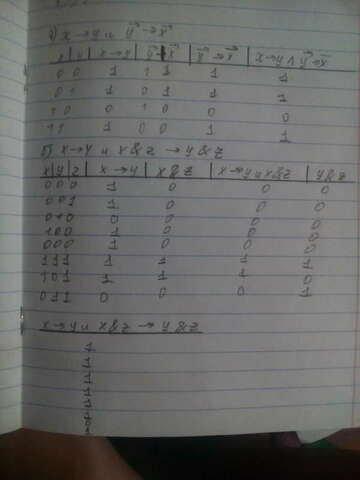 а) x → y и ȳ → x̄
x | y | x → y | ȳ | x̄ | ȳ → x̄ | x → y ∧ ȳ → x̄
0 0 1 1 1 1 1
0 1 1 0 1 1 1
1 0 0 1 0 0 0
1 1 1 0 0 1 1
б) x → y и x & z → y & z
x | y | z | x → y | x & z | x → y и x & z | y & z
0 0 0 1 0 0 0
0 0 1 1 0 0 0
0 1 0 0 0 0 0
1 0 0 1 0 0 0
0 0 0 1 0 0 0
1 1 1 1 1 1 1
1 0 1 1 1 1 0
0 1 1 0 0 0 1
x → y и x & z → y & z
1
1
1
1
1
1
0
1